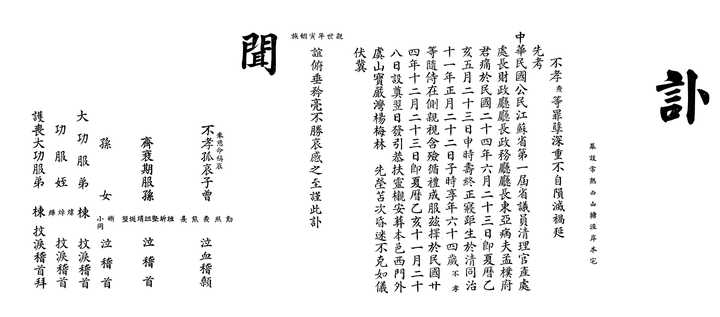 訃
幕設常熟山塘涇岸本宅
不孝等罪孽深重不自隕滅禍延
先考
中華民國公民江蘇省第一屆省議員清理官產處
處長財政廳廳長政務廳廳長東亞病夫孟樸府
君痛於民國二十四年六月二十三日即夏曆乙
亥五月二十三日申時壽終正寢距生於清同治
十一年正月二十二日子時享年六十四歲不孝
等隨侍在側親視含殮循禮成服茲擇於民國廿
四年十二月二十三日即夏曆乙亥十一月二十
八日設奠翌日發引恭扶靈櫬安葬本邑西門外
虞山寶嚴灣楊梅林 先塋苫次昏迷不克如儀
伏冀
世年寅姻族
誼俯垂矜亮不勝哀感之至謹此訃
聞
奉慈命稱哀
不孝孤哀子曾 泣血稽顙
齊衰期服孫 泣稽首
孫女 小同 泣稽首
大功服弟 棟 抆淚稽首
功服姪 抆淚稽首
護喪大功服弟 棟 抆淚稽首拜